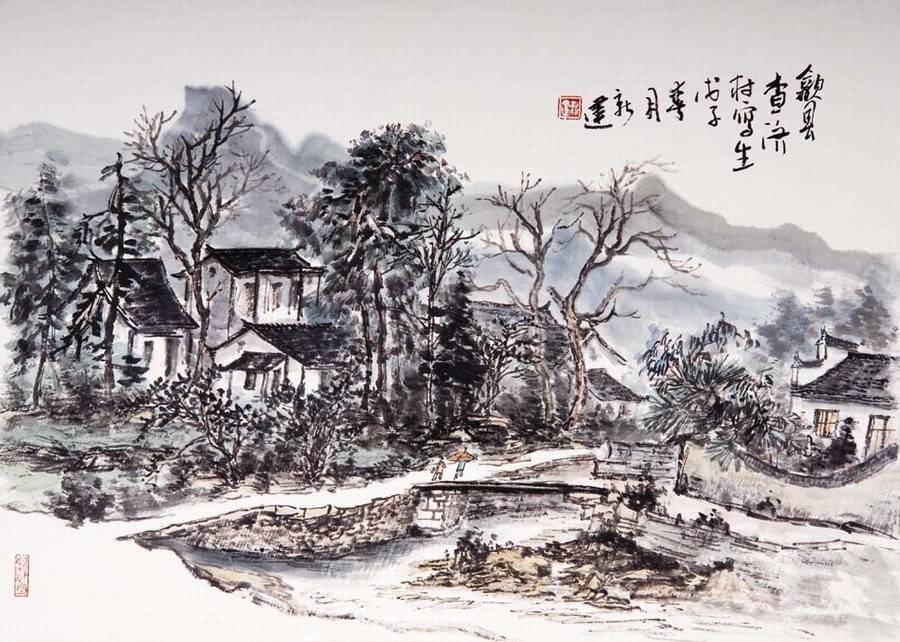 歙县
查济
村写生
戊子
春
月
新
建